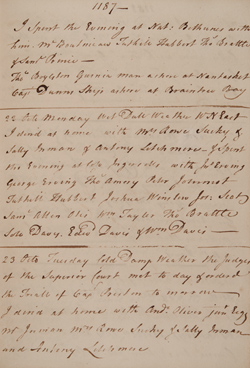 1187—
I Spent the Evening at Nat: Bethunes with
him Mr Tuthill Hubbart Tho. Brattle
&
Tho. Boylston man ashore at Nantasket
Capt Dunns Ship ashore at Braintree Bay
22 Octo Monday Dull Weather Wd N East
I dined at home with Mrs Rowe Sucky &
Sally Inman & Antony Letchmere & Spent
the Evening at with Jos Erving
George Erving Tho Amory Peter Johonnot
Tuthill Hubbart Joshua Winslow Jor:
Saml Allen Otis Wm Taylor Tho Brattle
Solo Davis Edwd Davis & Wm Davis—
23 Octo Tuesday Cold Damp Weather the Judges
of the Superior Court met to day & ordered
the Tryall of Capt Preston to morrow
I dined at home with And. Oliver junr Esq
Mr Inman Mrs Rowe Sucky & Sally Inman
and Antony Letchmere